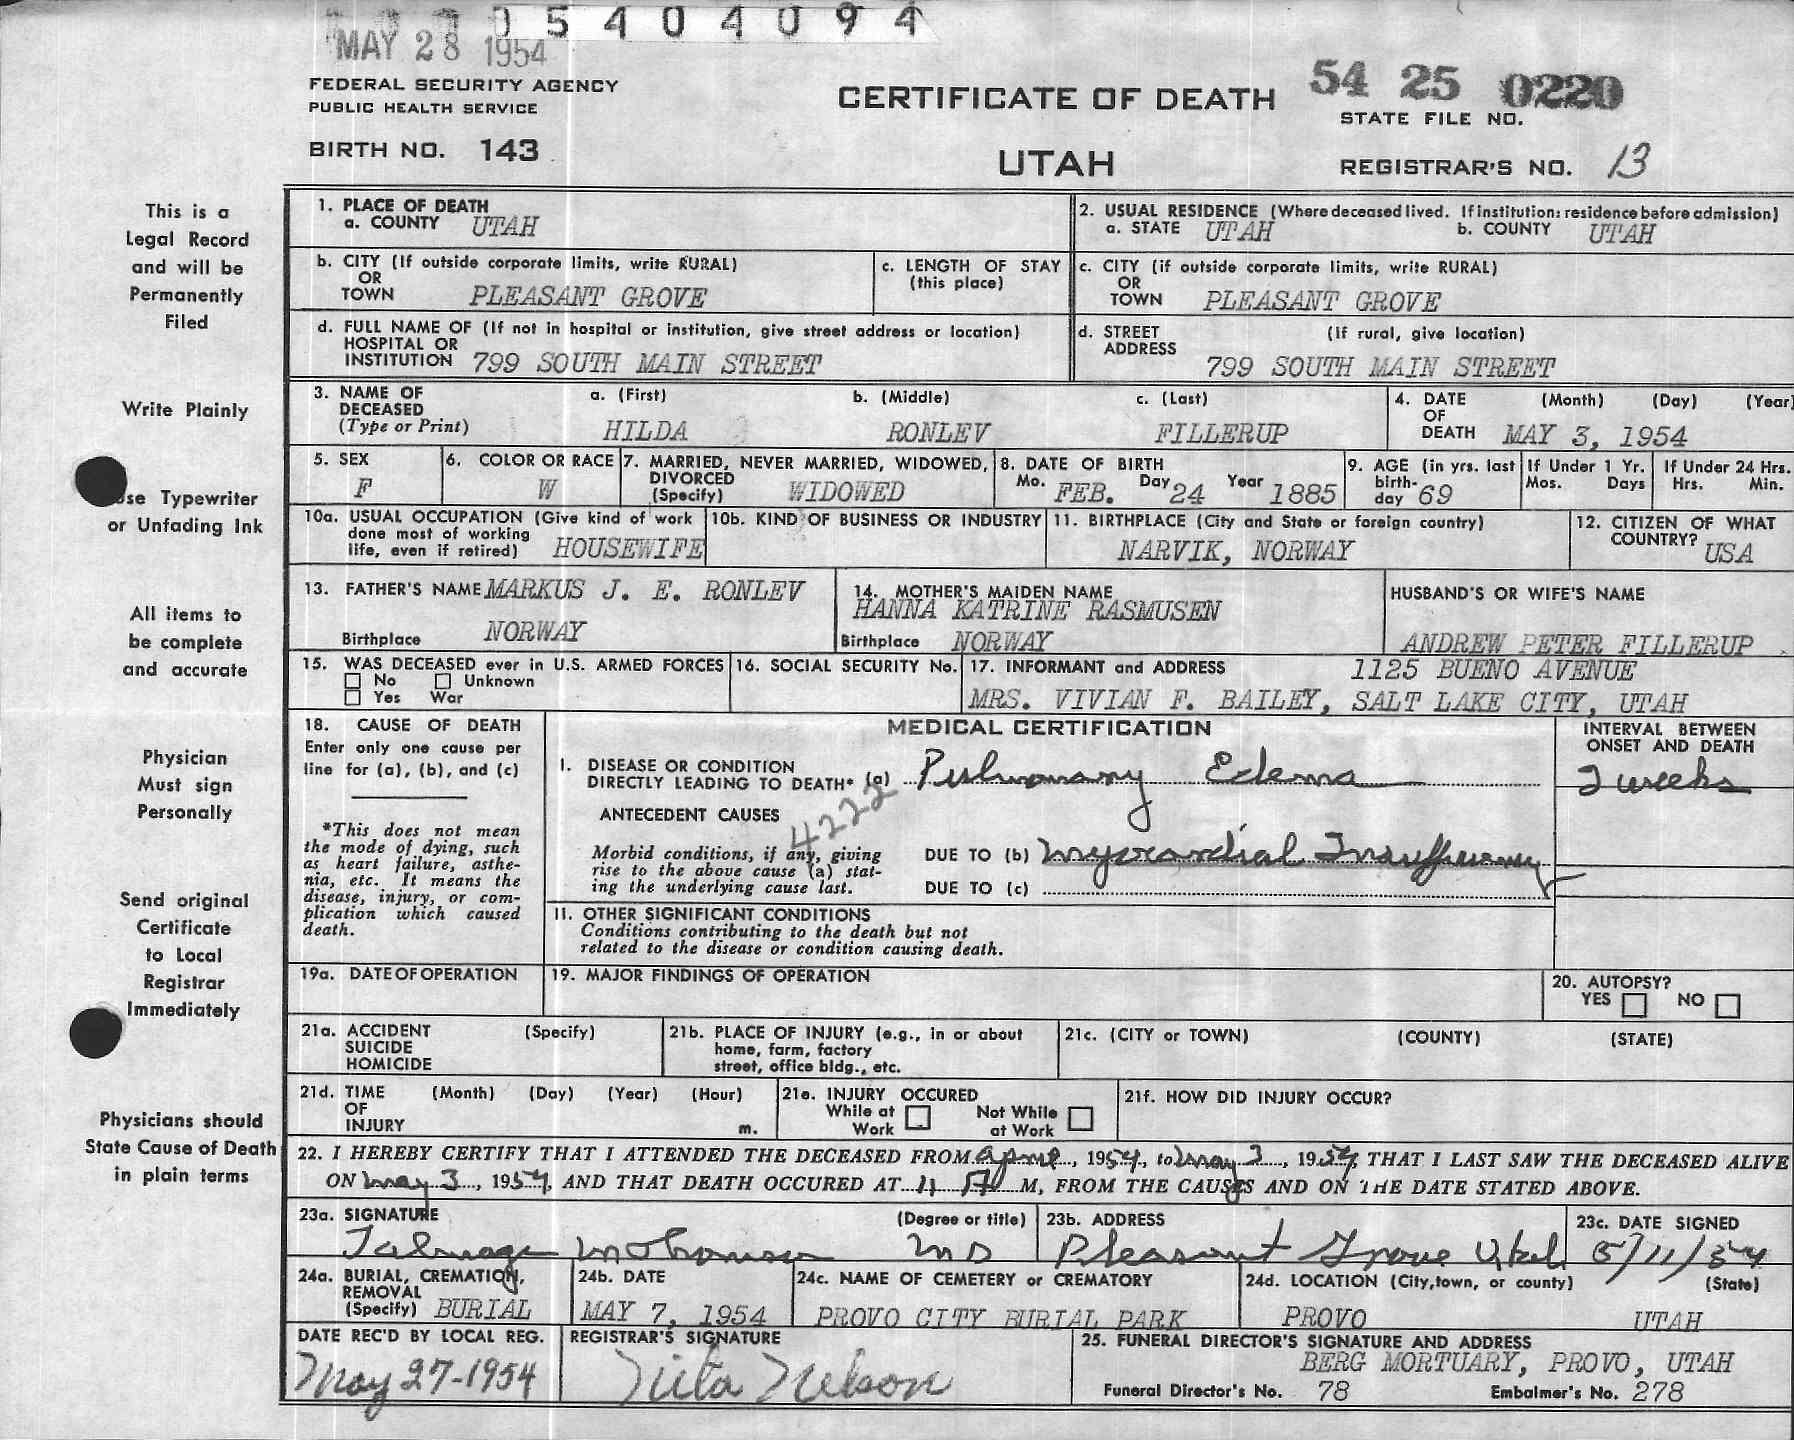 05404094
MAY 28 1954
FEDERAL SECURITY AGENCY
PUBLIC HEALTH SERVICE
BIRTH NO. 143
CERTIFICATE OF DEATH
UTAH
54 25 0220
STATE FILE NO.
REGISTRAR'S NO. 13
This is a
Legal Record
and will be
Permanently
Filed
Write Plainly
se Typewriter
or Unfading Ink
All items to
be complete
and accurate
Physician
Must sign
Personally
Send original
Certificate
to Local
Registrar
Immediately
Physicians should
State Cause of Death
in plain terms
1. PLACE OF DEATH
a. COUNTY UTAH
2. USUAL RESIDENCE (Where deceased lived. If institution: residence before admission)
a. STATE UTAH b. COUNTY UTAH
b. CITY (If outside corporate limits, write RURAL)
OR
TOWN PLEASANT GROVE
c. LENGTH OF STAY
(this place)
c. CITY (if outside corporate limits, write RURAL)
OR
TOWN PLEASANT GROVE
d. FULL NAME OF (If not in hospital or institution, give street address or location)
HOSPITAL OR
INSTITUTION 799 SOUTH MAIN STREET
d. STREET (If rural, give location)
ADDRESS
799 SOUTH MAIN STREET
3. NAME OF a. (First) b. (Middle) c. (Last)
DECEASED
(Type or Print) HILDA RONLEV FILLERUP
4. DATE (Month) (Day) (Year)
OF
DEATH MAY 3, 1954
5. SEX
F
6. COLOR OR RACE
W
7. MARRIED, NEVER MARRIED, WIDOWED,
DIVORCED
(Specify) WIDOWED
8. DATE OF BIRTH
Mo. FEB. Day 24 Year 1885
9. AGE (in yrs. last
birth-
day 69
If Under 1 Yr.
Mos. Days
If Under 24 Hrs.
Hrs. Min.
10a. USUAL OCCUPATION (Give kind of work
done most of working
life, even if retired) HOUSEWIFE
10b. KIND OF BUSINESS OR INDUSTRY
11. BIRTHPLACE (City and State or foreign country)
NARVIK, NORWAY
12. CITIZEN OF WHAT
COUNTRY? USA
13. FATHER'S NAME MARKUS J. E. RONLEV
Birthplace NORWAY
14. MOTHER'S MAIDEN NAME
HANNA KATRINE RASMUSEN
Birthplace NORWAY
HUSBAND'S OR WIFE'S NAME
ANDREW PETER FILLERUP
15. WAS DECEASED ever in U.S. ARMED FORCES
No Unknown
Yes War
16. SOCIAL SECURITY No.
17. INFORMANT and ADDRESS 1125 BUENO AVENUE
MRS. VIVIAN F. BAILEY, SALT LAKE CITY, UTAH
18. CAUSE OF DEATH
Enter only one cause per
line for (a), (b), and (c)
*This does not mean
the mode of dying, such
as heart failure, asthe-
nia, etc. It means the
disease, injury, or com-
plication which caused
death.
MEDICAL CERTIFICATION
INTERVAL BETWEEN
ONSET AND DEATH
I. DISEASE OR CONDITION
DIRECTLY LEADING TO DEATH* (a) Pulmonary Edema 2 weeks
ANTECEDENT CAUSES
4222
Morbid conditions, if any, giving
rise to the above cause (a) stat-
ing the underlying cause last.
DUE TO (b) Myocardial Insufficiency
DUE TO (c)
II. OTHER SIGNIFICANT CONDITIONS
Conditions contributing to the death but not
related to the disease or condition causing death.
19a. DATE OF OPERATION
19. MAJOR FINDINGS OF OPERATION
20. AUTOPSY?
YES NO
21a. ACCIDENT (Specify)
SUICIDE
HOMICIDE
21b. PLACE OF INJURY (e.g., in or about
home, farm, factory
street, office bldg., etc.
21c. (CITY or TOWN) (COUNTY) (STATE)
21d. TIME (Month) (Day) (Year) (Hour)
OF
INJURY m.
21e. INJURY OCCURED
While at Work Not While at Work
21f. HOW DID INJURY OCCUR?
22. I HEREBY CERTIFY THAT I ATTENDED THE DECEASED FROM April, 1954, to May 3, 1954, THAT I LAST SAW THE DECEASED ALIVE
ON May 3, 1954, AND THAT DEATH OCCURED AT 11 A M, FROM THE CAUSES AND ON THE DATE STATED ABOVE.
23a. SIGNATURE (Degree or title)
Talmage MD
23b. ADDRESS
Pleasant Grove Utah
23c. DATE SIGNED
5/11/54
24a. BURIAL, CREMATION,
REMOVAL
(Specify) BURIAL
24b. DATE
MAY 7, 1954
24c. NAME OF CEMETERY or CREMATORY
PROVO CITY BURIAL PARK
24d. LOCATION (City, town, or county) (State)
PROVO UTAH
DATE REC'D BY LOCAL REG.
May 27-1954
REGISTRAR'S SIGNATURE
Nelson
25. FUNERAL DIRECTOR'S SIGNATURE AND ADDRESS
BERG MORTUARY, PROVO, UTAH
Funeral Director's No. 78 Embalmer's No. 278